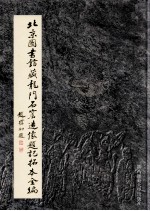 北京圖書館藏龍門石窟造像題記拓本全編
趙樸初題